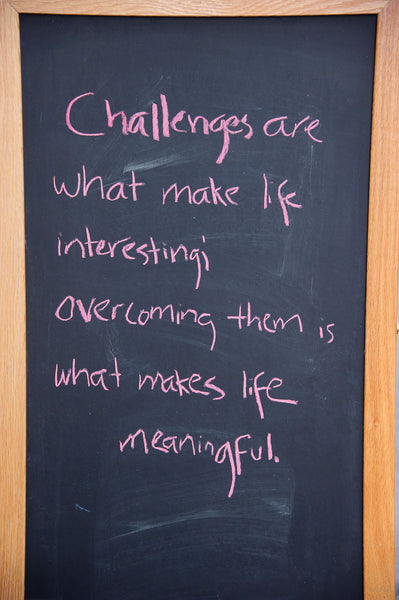 Challenges are
what make life
interesting;
overcoming them is
what makes life
meaningful.